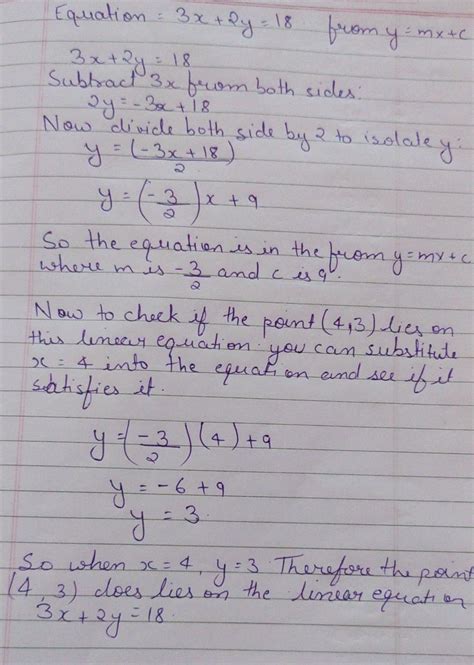 Equation = 3x+2y=18 from y=mx+c
3x+2y=18
Subtract 3x from both sides:
2y=-3x+18
Now divide both side by 2 to isolate y:
y=(-3x+18)/2
y=(-3/2)x+9
So the equation is in the from y=mx+c
where m is -3/2 and c is 9.
Now to check if the point (4,3) lies on
this linear equation you can substitute
x=4 into the equation and see if it
satisfies it.
y=(-3/2)(4)+9
y=-6+9
y=3
So when x=4, y=3. Therefore the point
(4,3) does lies on the linear equation
3x+2y=18.